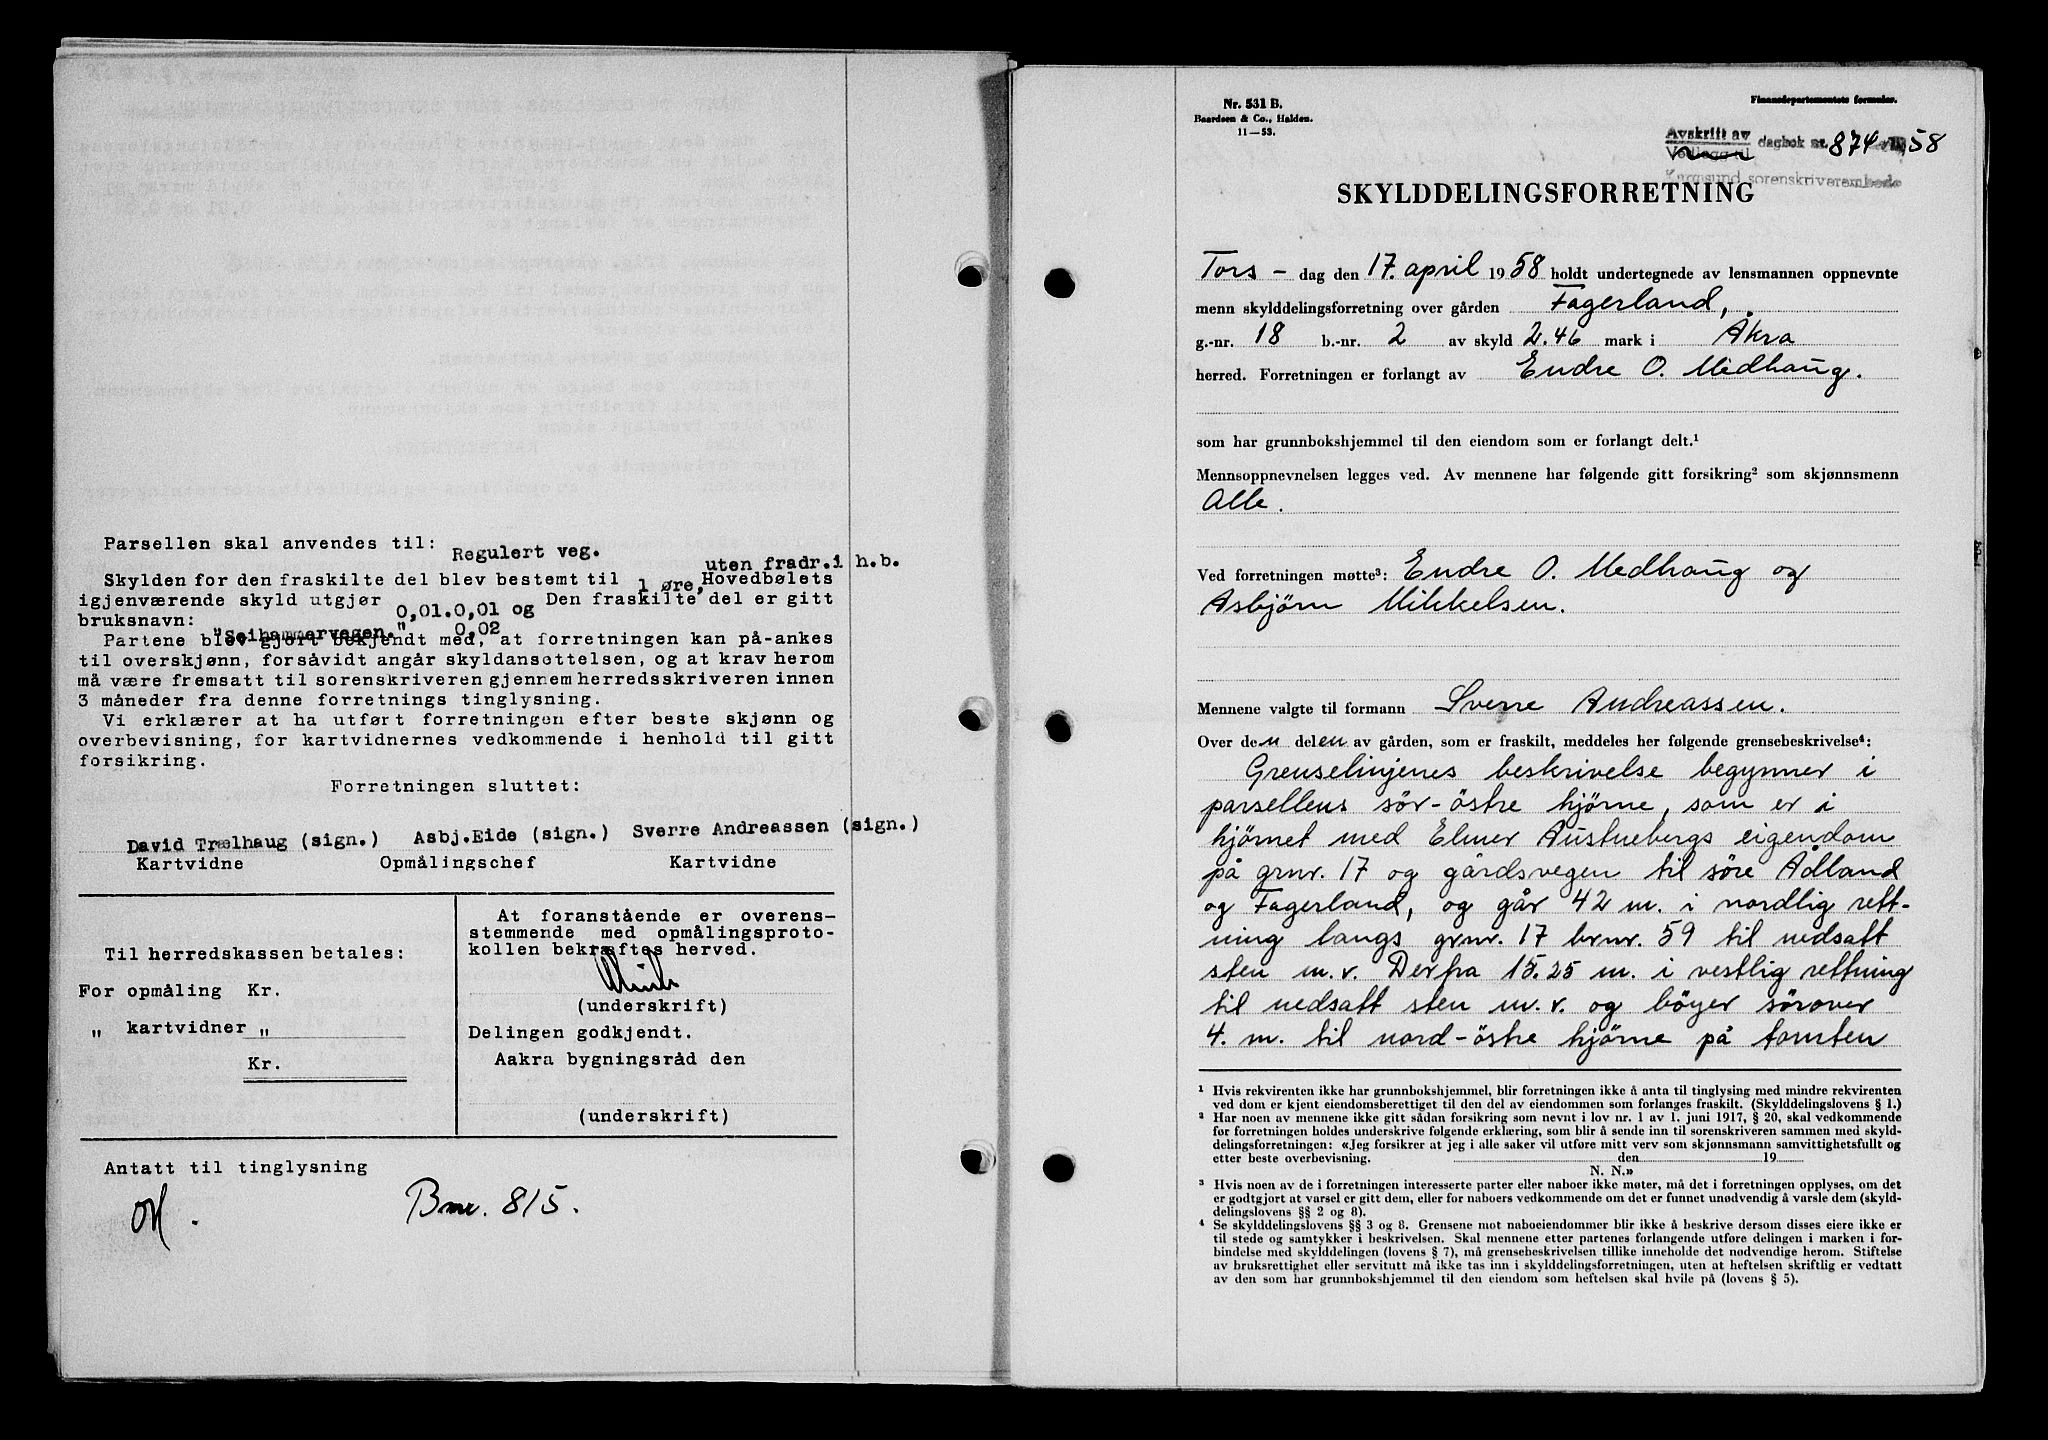 Parsellen skal anvendes til: Regulert veg.
uten fradr. i h.b.
Skylden for den fraskilte del blev bestemt til 1 øre, Hovedbølets
igjenværende skyld utgjør 0,01.0,01 og 0,02 Den fraskilte del er gitt
bruksnavn: "Seihammervegen."
Partene blev gjort bekjendt med, at forretningen kan på-ankes
til overskjønn, forsåvidt angår skyldansettelsen, og at krav herom
må være fremsatt til sorenskriveren gjennem herredsskriveren innen
3 måneder fra denne forretnings tinglysning.
Vi erklærer at ha utført forretningen efter beste skjønn og
overbevisning, for kartvidnernes vedkommende i henhold til gitt
forsikring.
Forretningen sluttet:
David Trælhaug (sign.) Asbj.Eide (sign.) Sverre Andreassen (sign.)
Kartvidne Opmålingschef Kartvidne
Til herredskassen betales:
For opmåling Kr.
„ kartvidner „
Kr.
At foranstående er overens-
stemmende med opmålingsproto-
kollen bekræftes herved.
(underskrift)
Delingen godkjendt.
Aakra bygningsråd den
(underskrift)
Antatt til tinglysning
Bnr. 815.
Nr. 531 B.
Baardsen & Co., Halden.
11—53.
Finansdepartementets formular.
Avskrift av
Vedlegg til dagbok nr. 874 58
Karmsund sorenskriverembede
SKYLDDELINGSFORRETNING
Tors - dag den 17. april 1958 holdt undertegnede av lensmannen oppnevnte
menn skylddelingsforretning over gården Fagerland,
g.-nr. 18 b.-nr. 2 av skyld 2.46 mark i Åkra
herred. Forretningen er forlangt av Endre O. Medhaug.
som har grunnbokshjemmel til den eiendom som er forlangt delt.¹
Mennsoppnevnelsen legges ved. Av mennene har følgende gitt forsikring² som skjønnsmenn
Alle.
Ved forretningen møtte³: Endre O. Medhaug og
Asbjörn Mikkelsen.
Mennene valgte til formann Sverre Andreassen.
Over den delen av gården, som er fraskilt, meddeles her følgende grensebeskrivelse⁴:
Grenselinjenes beskrivelse begynner i
parsellens sör-östre hjörne, som er i
hjörnet med Elmer Austnebergs eigendom
på grnr. 17 og gårdsvegen til söre Ådland
og Fagerland, og går 42 m. i nordlig rett-
ning langs grnr. 17 brnr. 59 til nedsatt
sten m.v. Derfra 15.25 m. i vestlig rettning
til nedsatt sten m.v. og böyer sörover
4. m. til nord-östre hjörne på tomten
¹ Hvis rekvirenten ikke har grunnbokshjemmel, blir forretningen ikke å anta til tinglysing med mindre rekvirenten
ved dom er kjent eiendomsberettiget til den del av eiendommen som forlanges fraskilt. (Skylddelingslovens § 1.)
² Har noen av mennene ikke gitt sådan forsikring som nevnt i lov nr. 1 av 1. juni 1917, § 20, skal vedkommende
før forretningen holdes underskrive følgende erklæring, som blir å sende inn til sorenskriveren sammen med skyld-
delingsforretningen: «Jeg forsikrer at jeg i alle saker vil utføre mitt verv som skjønnsmann samvittighetsfullt og
etter beste overbevisning. den 19
N. N.»
³ Hvis noen av de i forretningen interesserte parter eller naboer ikke møter, må det i forretningen opplyses, om det
er godtgjort at varsel er gitt dem, eller for naboers vedkommende om det er funnet unødvendig å varsle dem (skyld-
delingslovens §§ 2 og 8).
⁴ Se skylddelingslovens §§ 3 og 8. Grensene mot naboeiendommer blir ikke å beskrive dersom disses eiere ikke er
til stede og samtykker i beskrivelsen. Skal mennene etter partenes forlangende utføre delingen i marken i for-
bindelse med skylddelingen (lovens § 7), må grensebeskrivelsen tillike inneholde det nødvendige herom. Stiftelse
av bruksrettighet eller servitutt må ikke tas inn i skylddelingsforretningen, uten at heftelsen skriftlig er vedtatt
av den som har grunnbokshjemmel til den eiendom som heftelsen skal hvile på (lovens § 5).